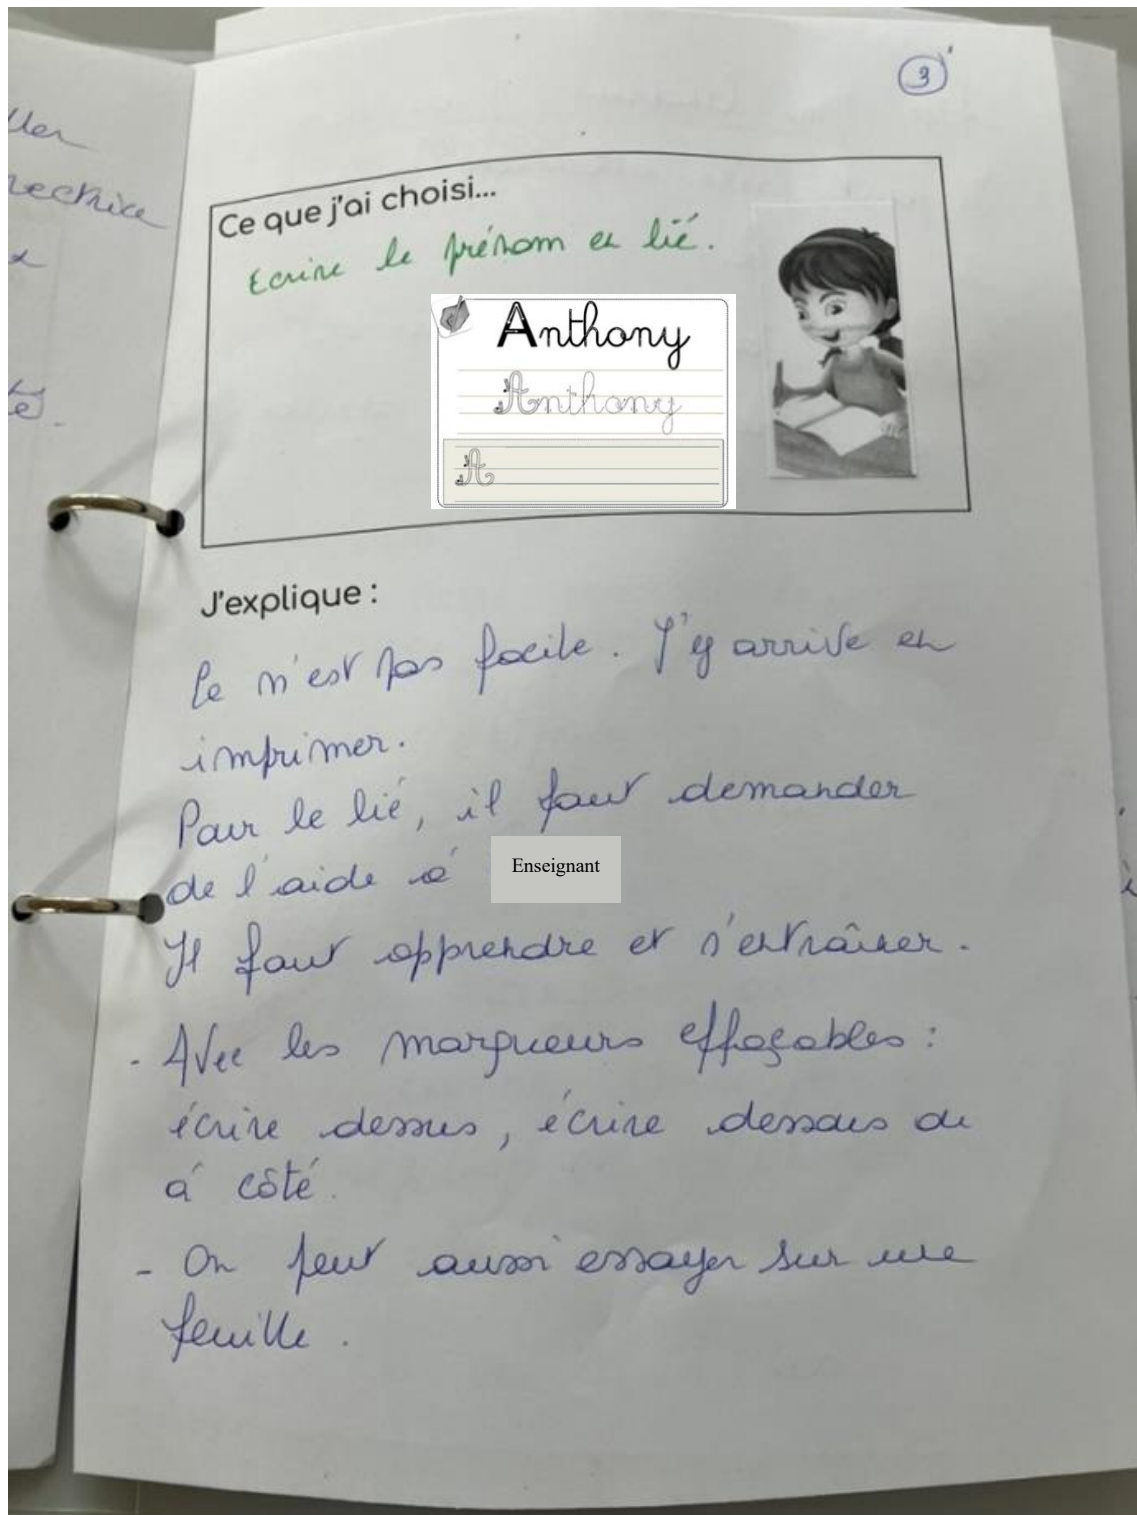 3
Ce que j'ai choisi...
Ecrire le prénom en lié.
Anthony
Anthony
A
J'explique :
Ce n'est pas facile. J'y arrive en
imprimer.
Pour le lié, il faut demander
de l'aide à Enseignant
Il faut apprendre et s'entraîner.
- Avec les marqueurs effaçables :
écrire dessus, écrire dessous ou
à côté.
- On peut aussi essayer sur une
feuille.